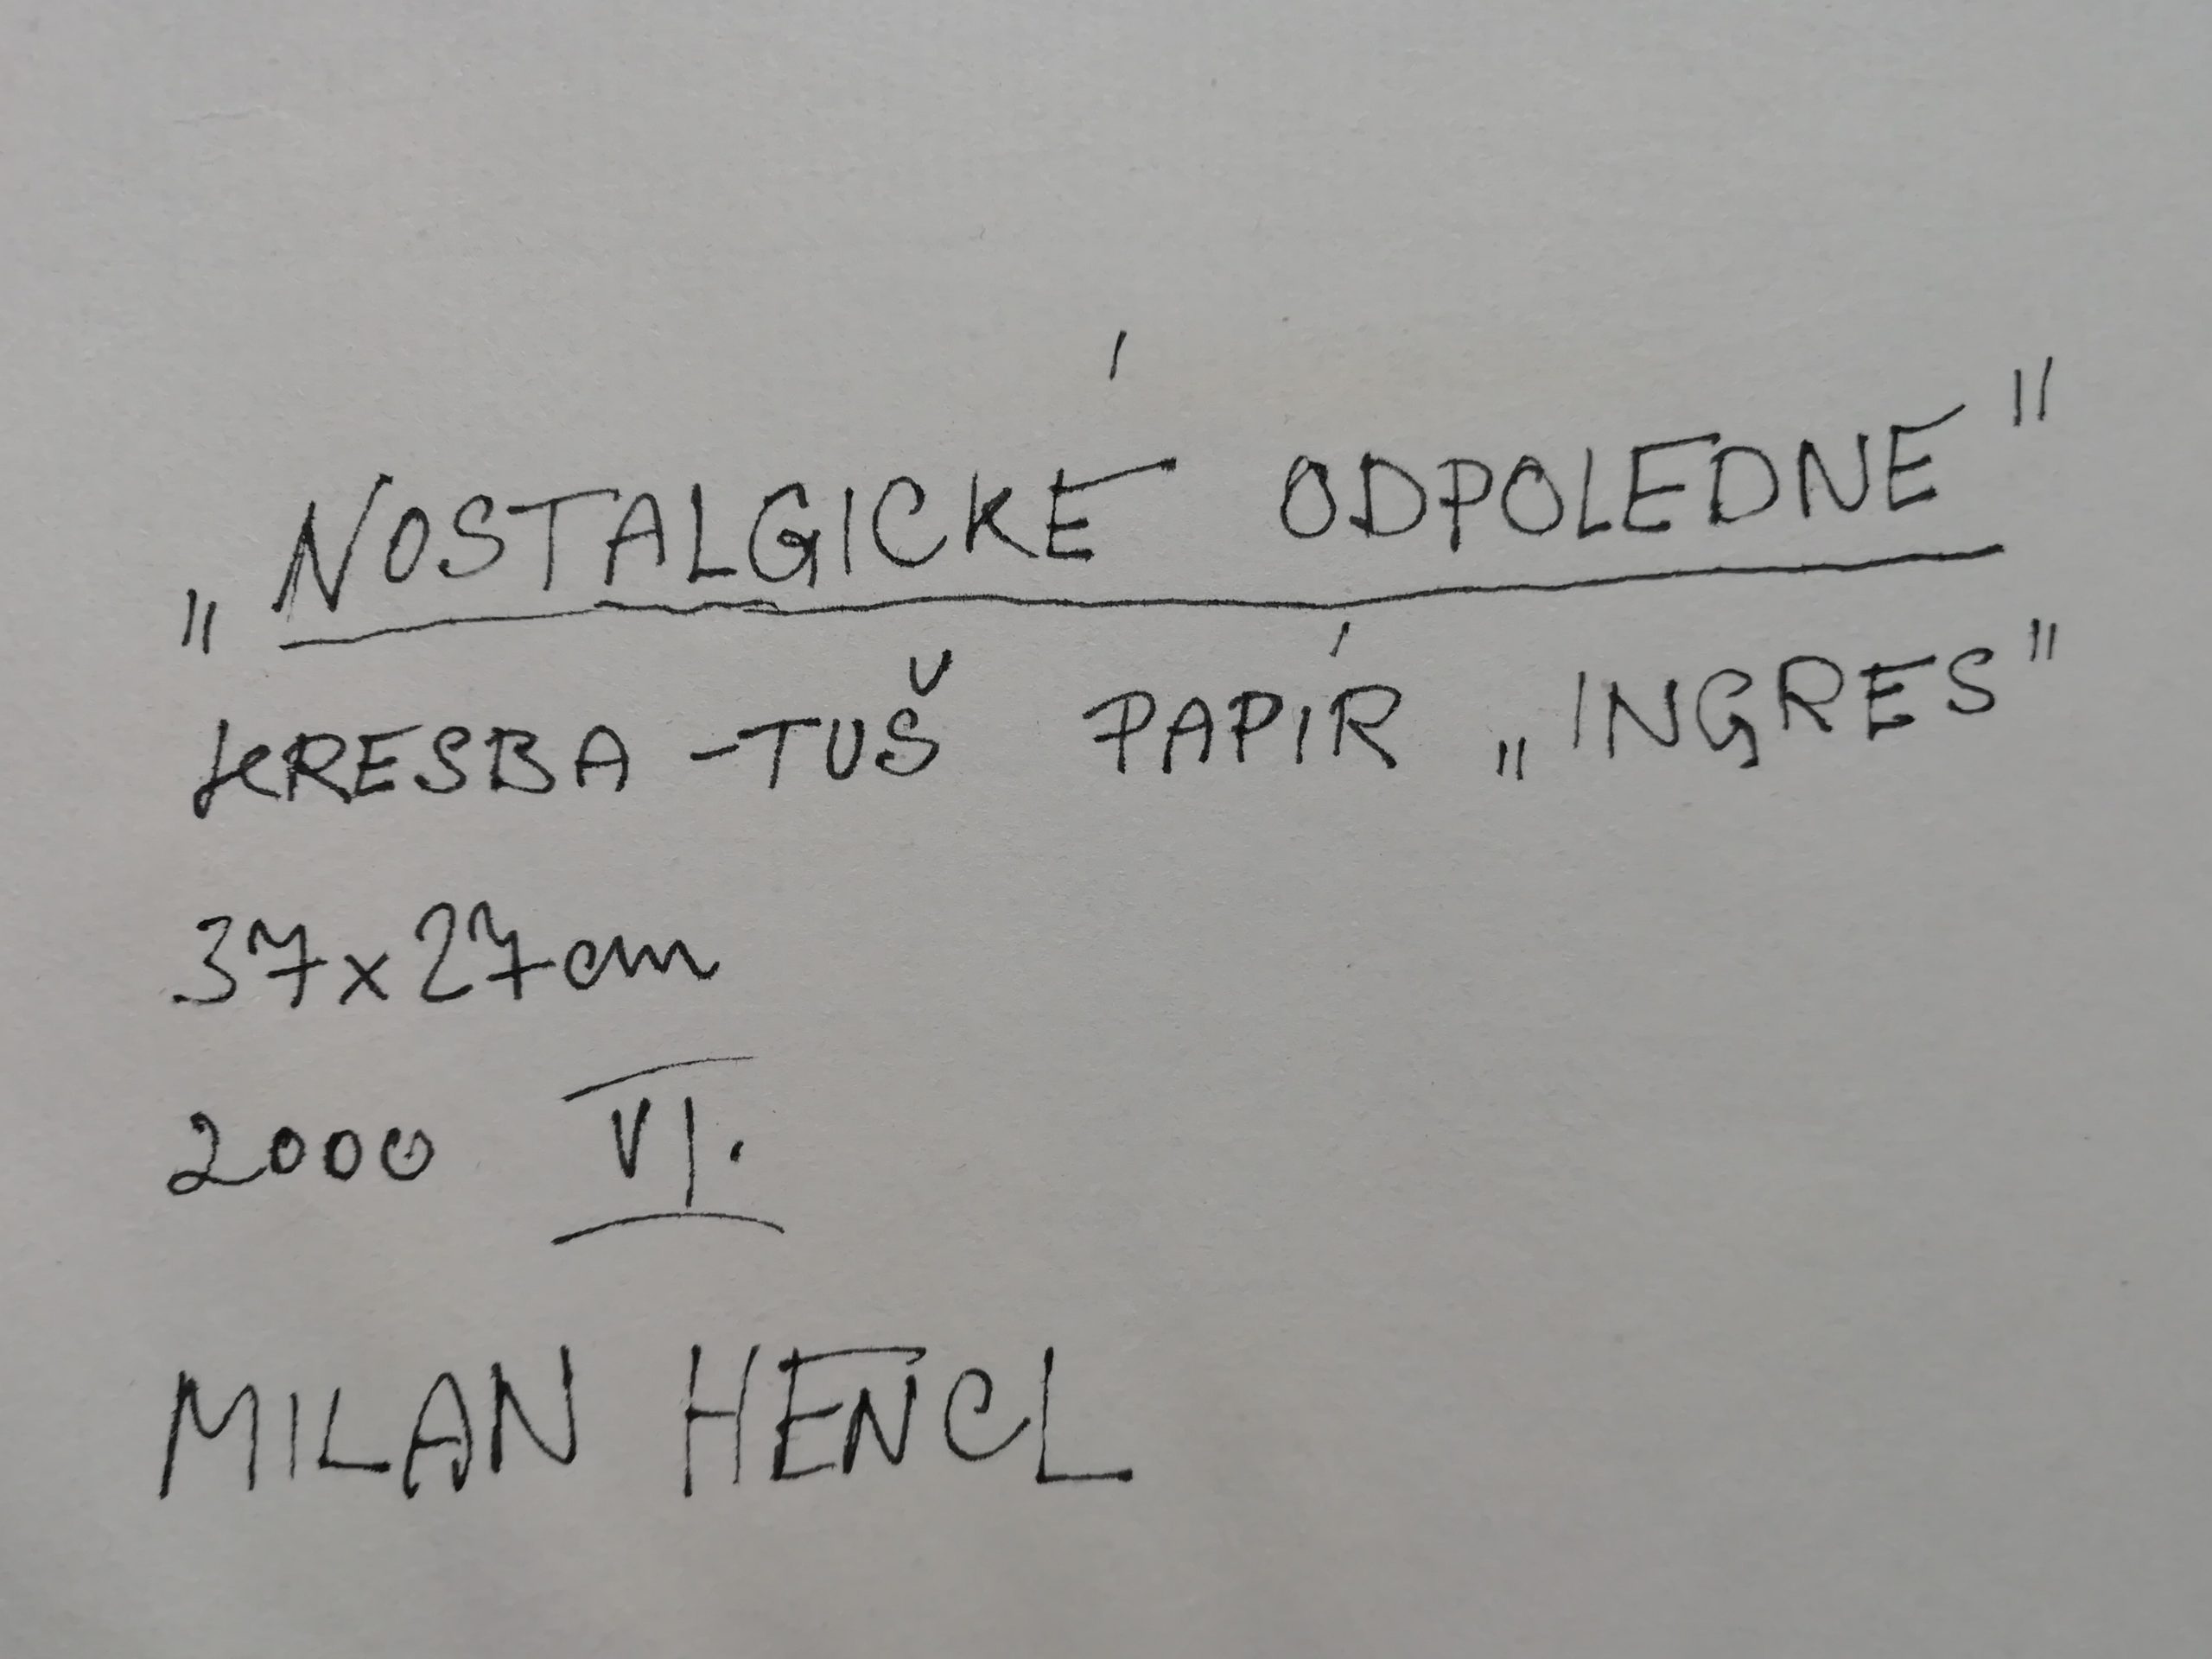 „NOSTALGICKÉ ODPOLEDNE"
KRESBA - TUŠ PAPÍR „INGRES"
37x27cm
2000 VI.
MILAN HENCL